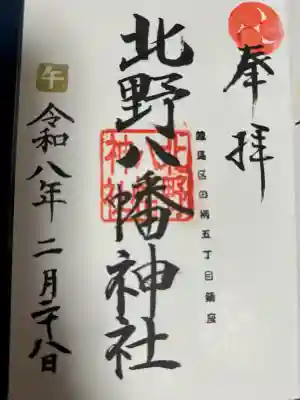 奉拝
練馬区田柄五丁目鎮座
北野八幡神社
北野八幡神社
午
令和八年二月二十八日